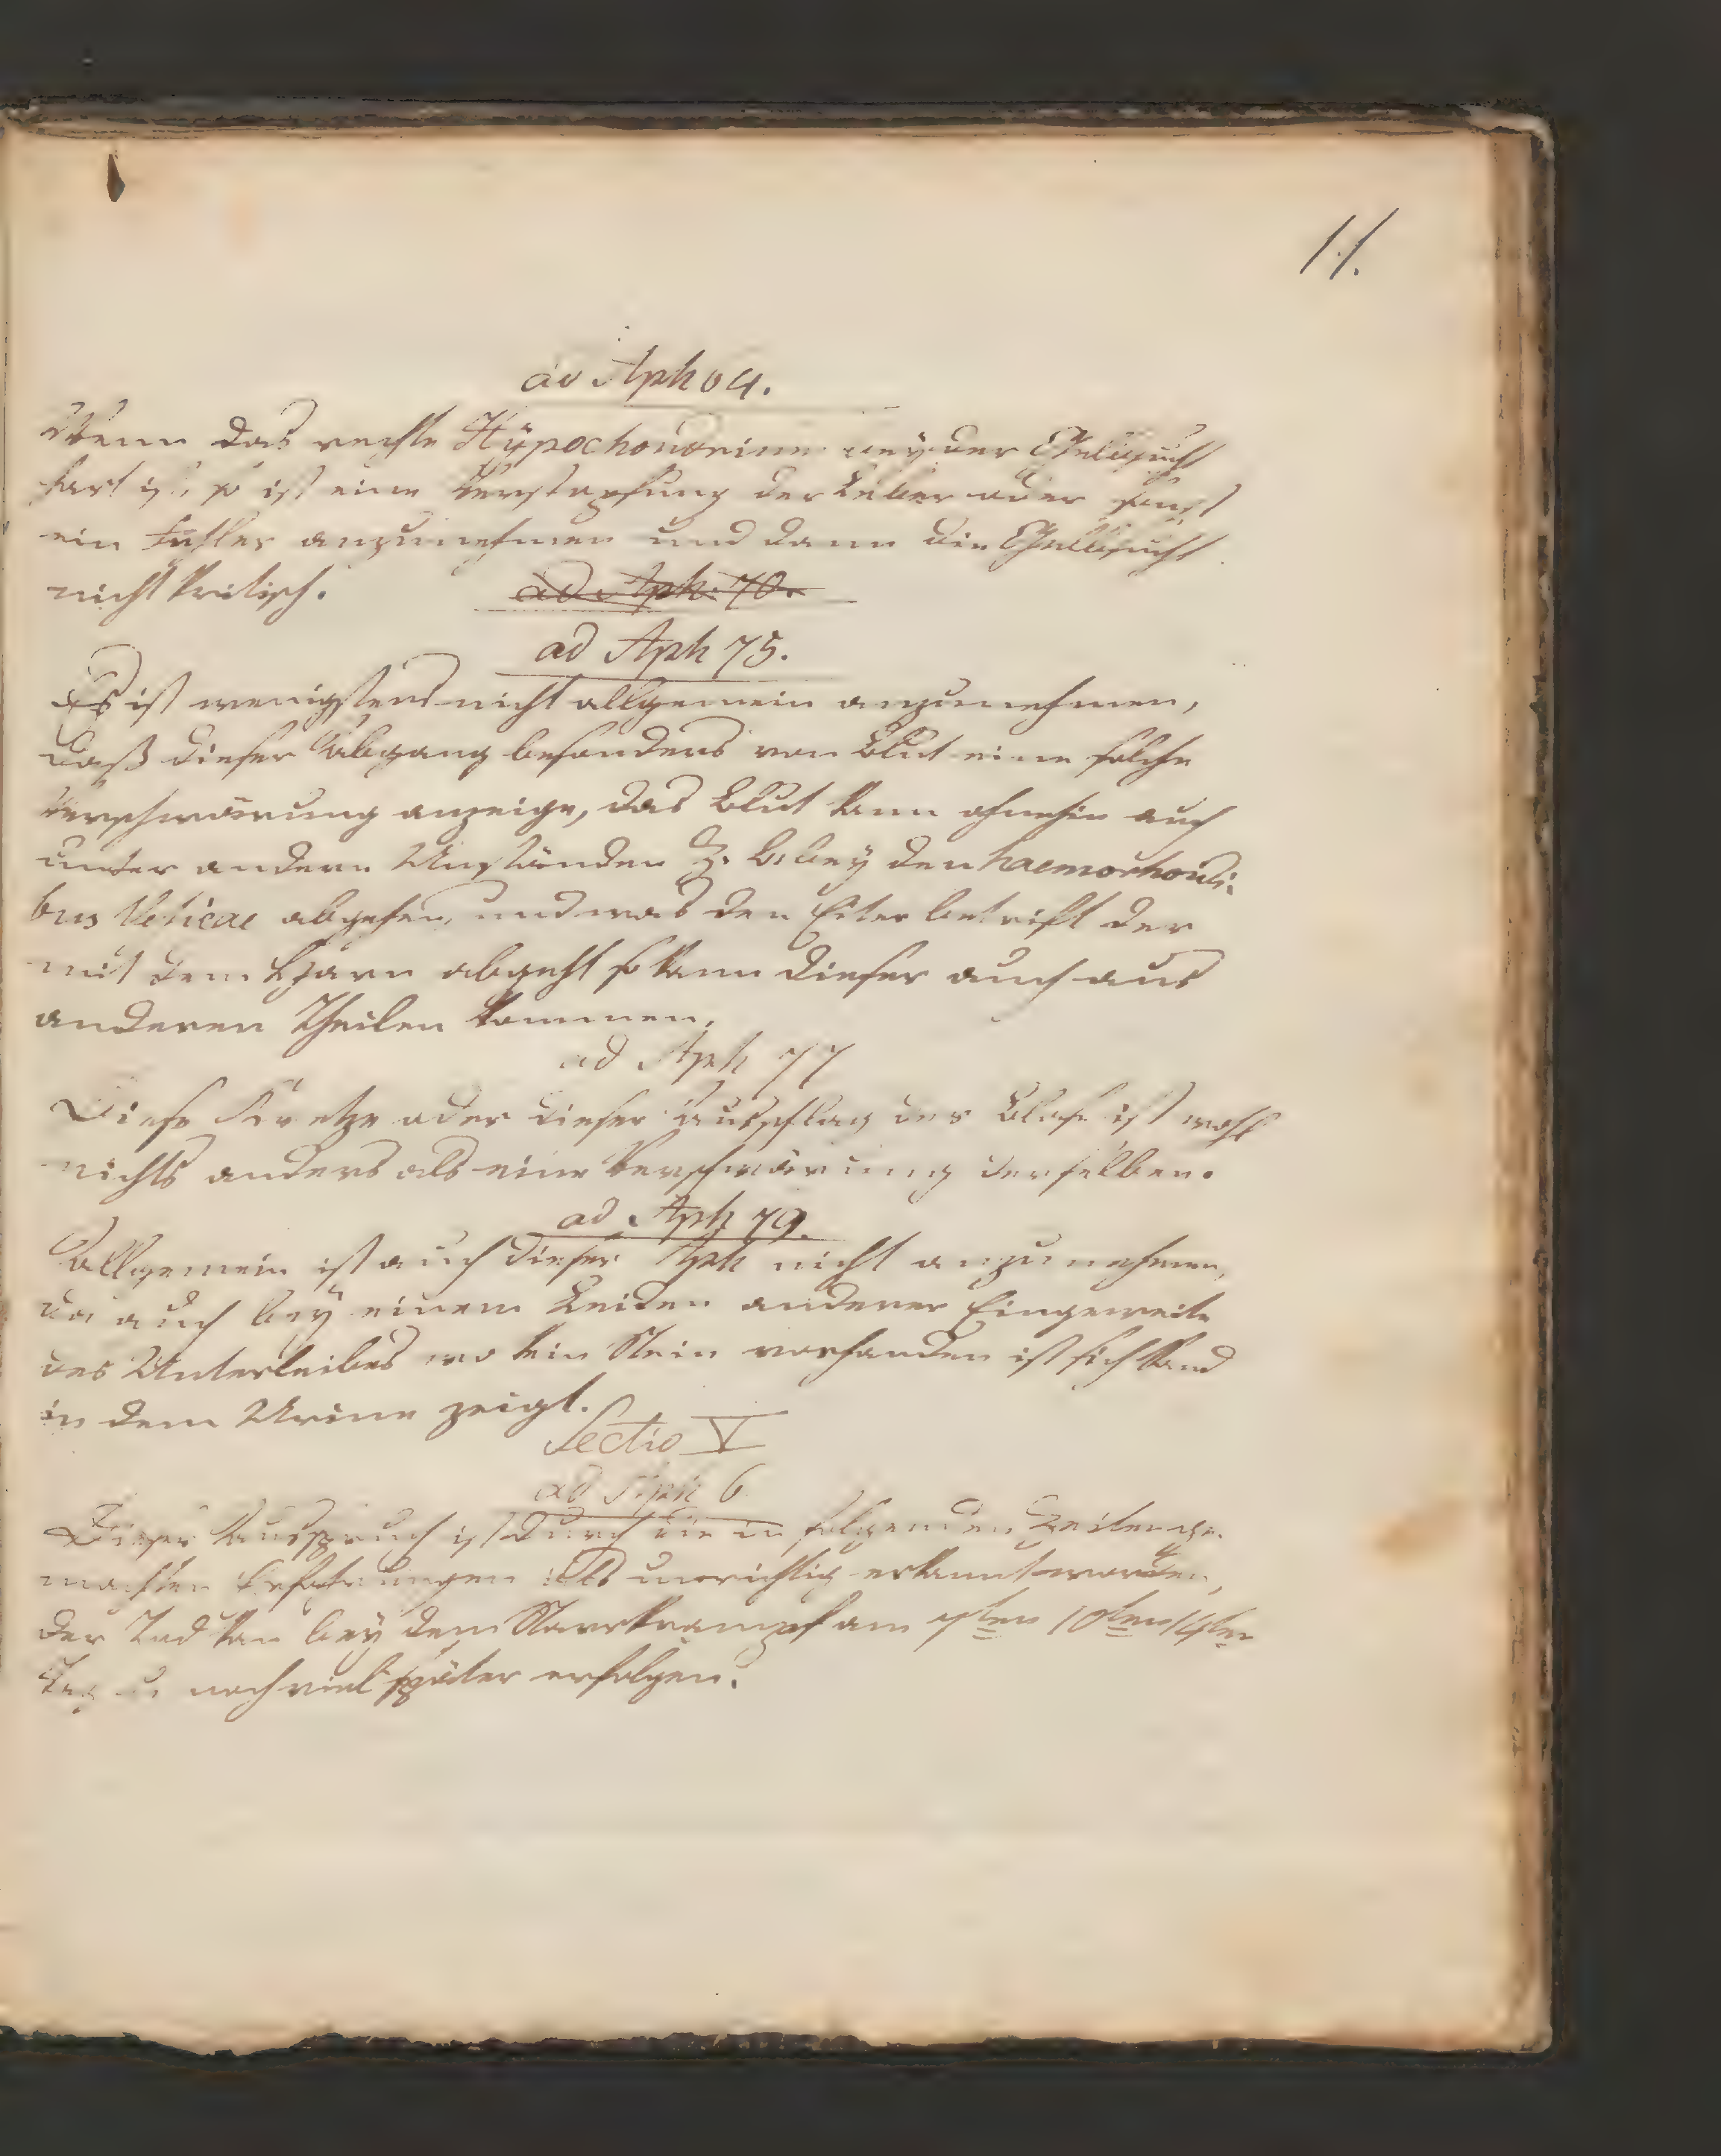 11.
ad Aph 64.
Wenn das rechte Hÿpochondrium beÿ der Gelbsucht
hart ist, so ist eine Verstopfung der Leber oder sonst
ein Fehler anzunehmen und dann die Gelbsucht
nicht kritisch.
ad Aph. 70.
ad Aph 75.
Es ist wenigstens nicht allgemein anzunehmen,
daß dieser Abgang besonders von Blut eine solche
Verschwärung anzeige, das Blut kann ohnehin auch
unter andern Umständen Z. B. beÿ den haemorhoidi-
bus Vesicae abgehen, und was den Eiter betrift der
mit dem Harn abgeht so kann dieser auch aus
anderen Theilen kommen.
ad Aph 77
Diese Kretze oder dieser Ausschlag der Blase ist wohl
nichts anders als eine Verschwärung derselben.
ad Aph 79.
Allgemein ist auch dieser Aph nicht anzunehmen,
da auch beÿ einem Leiden anderer Eingeweide
des Unterleibes wo kein Stein vorhanden ist sich Sand
in dem Urine zeigt.
Sectio V
ad Aph 6
Dieser Ausspruch ist durch die in folgenden Zeiten ge-
machten Erfahrungen als unrichtig erkannt worden,
der Tod kan beÿ dem Starrkrampf am 7ten 10ten 14ten
Tag u noch viel später erfolgen.